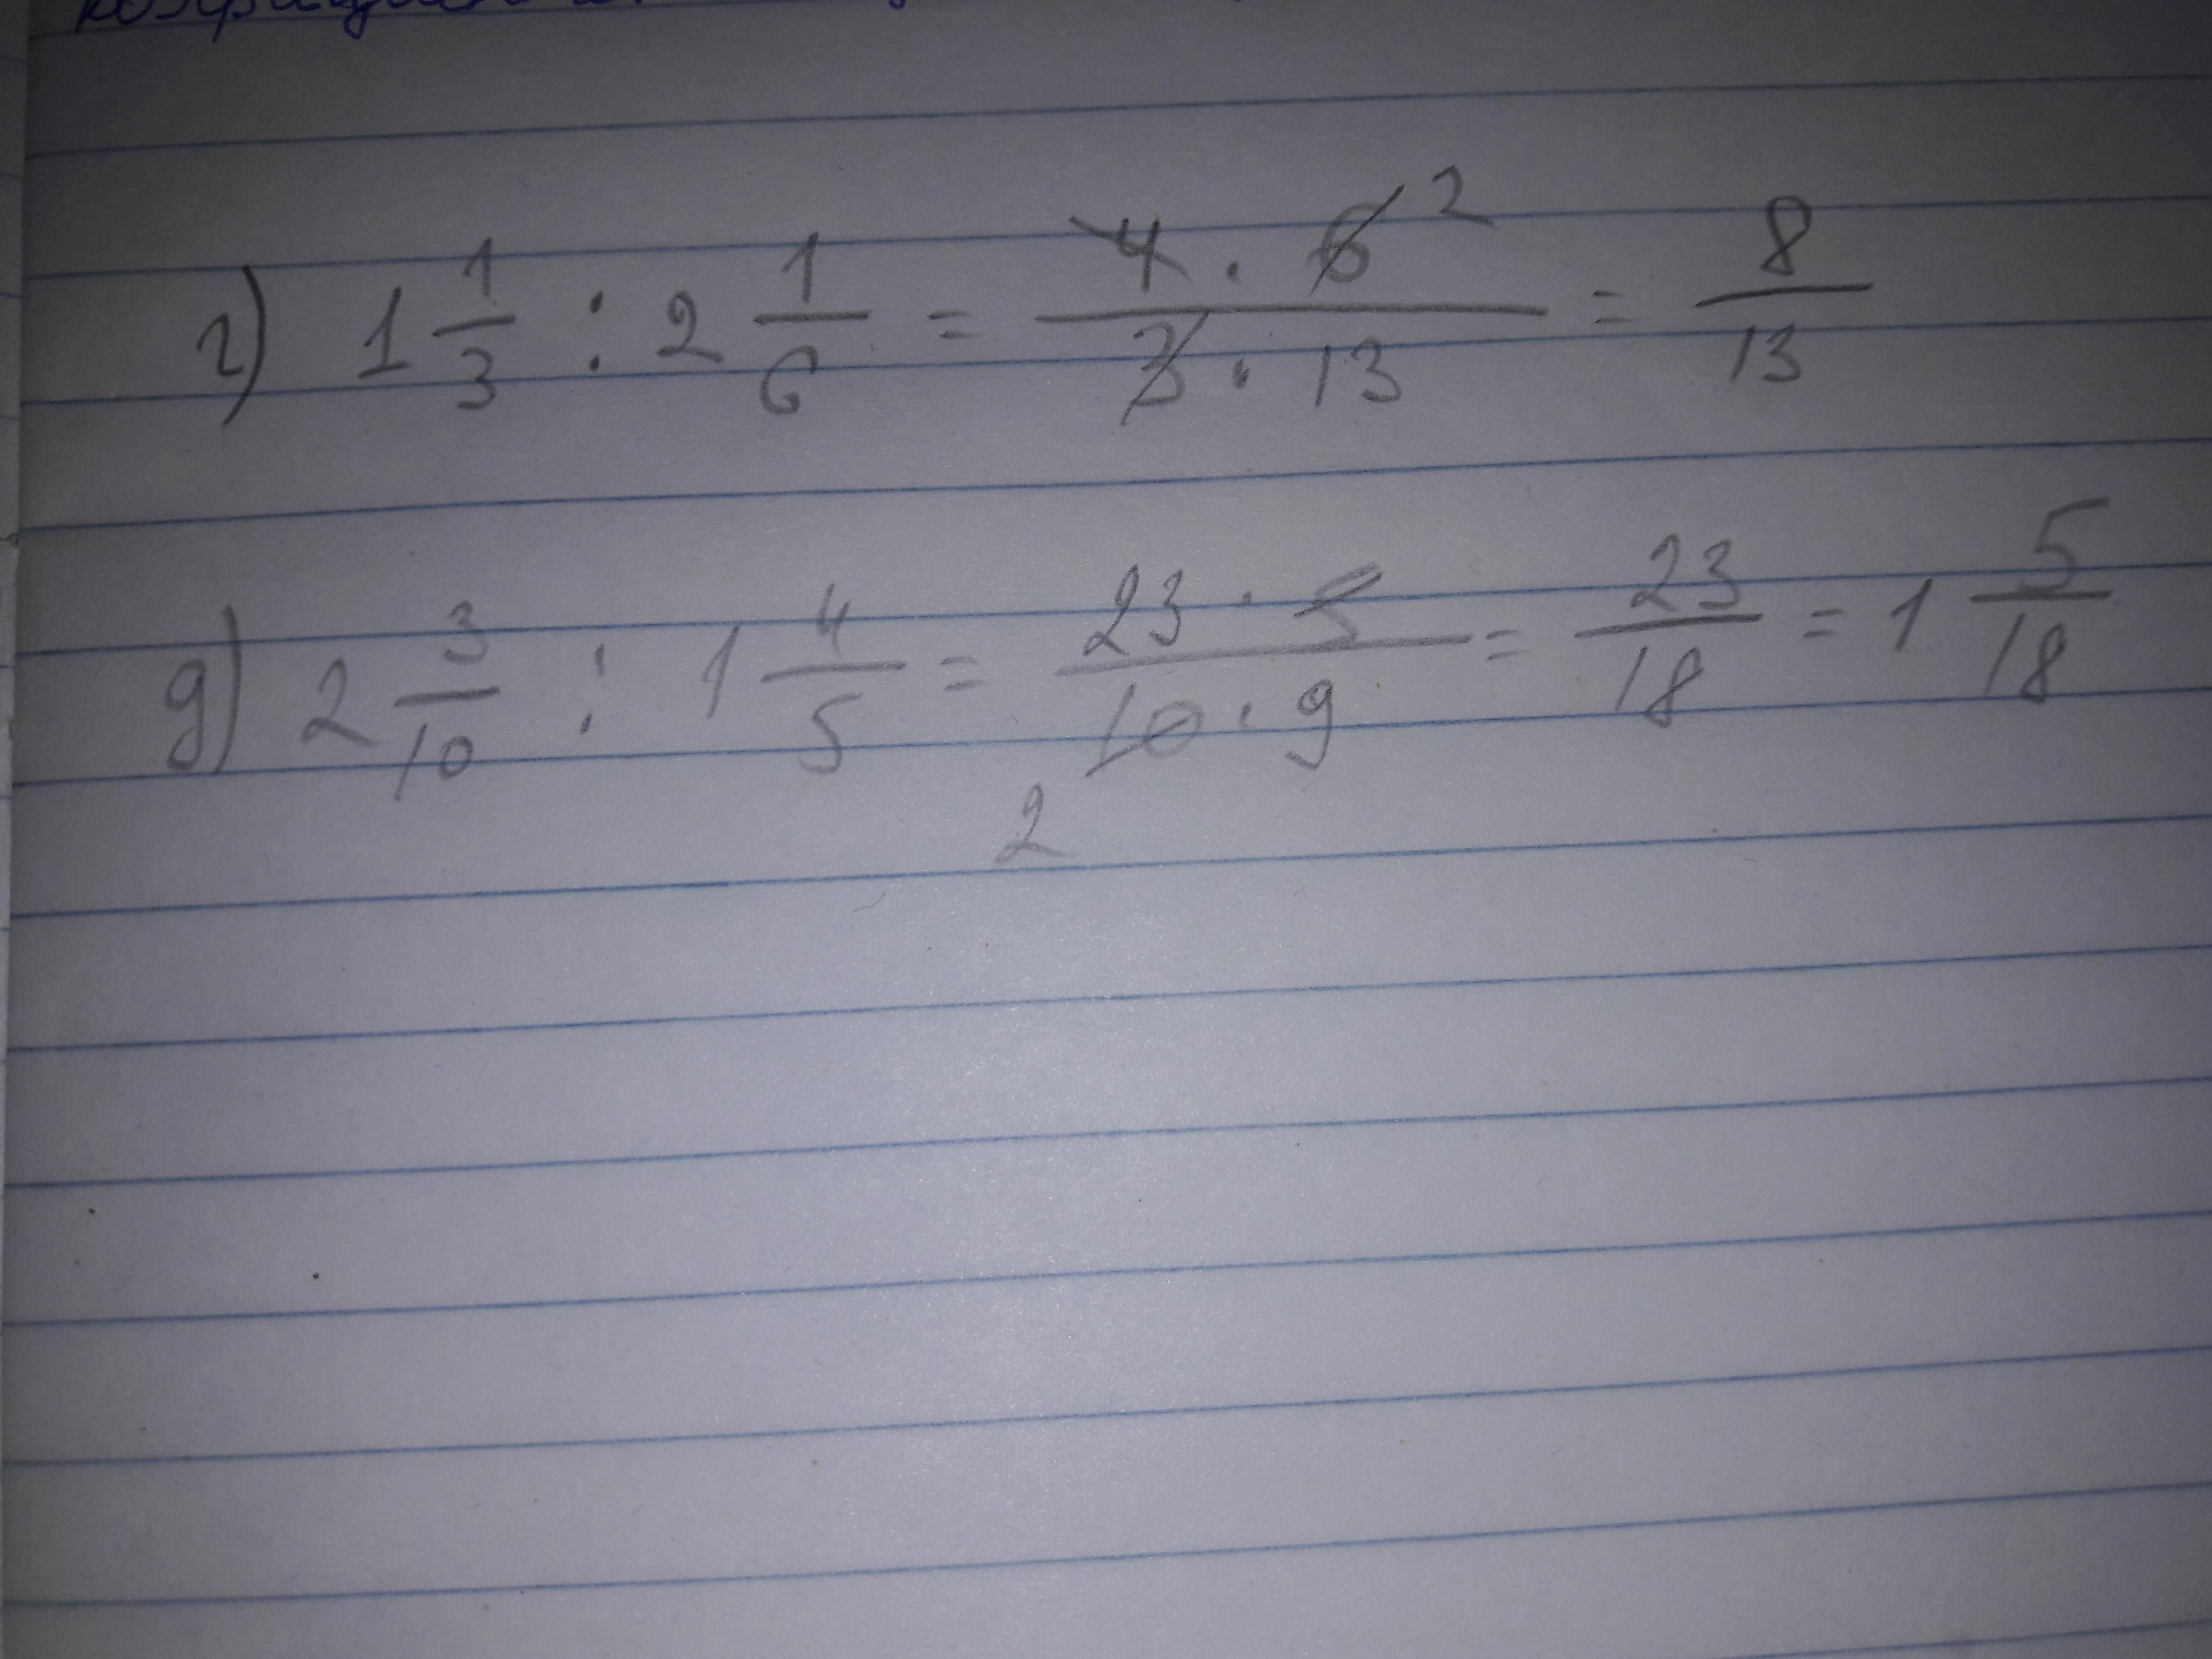 г) 1 1/3 : 2 1/6 = 4 · 6 2 / 3 · 13 = 8/13
д) 2 3/10 : 1 4/5 = 23 · 5 / 10 · 9 = 23/18 = 1 5/18
2